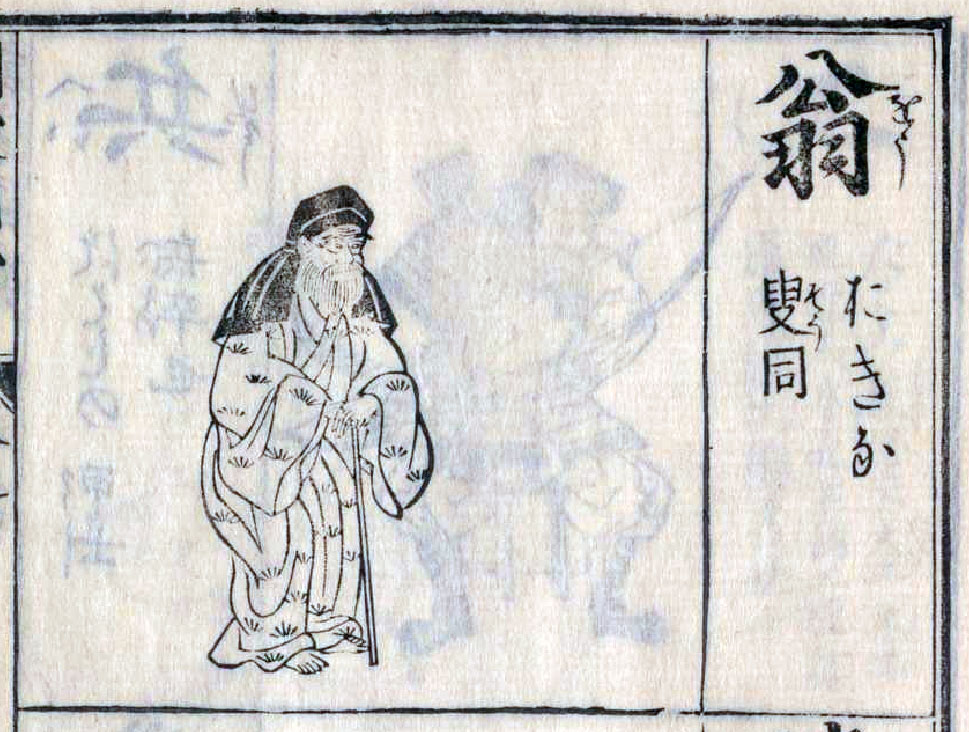 翁 をう
おきな
叟同 そう